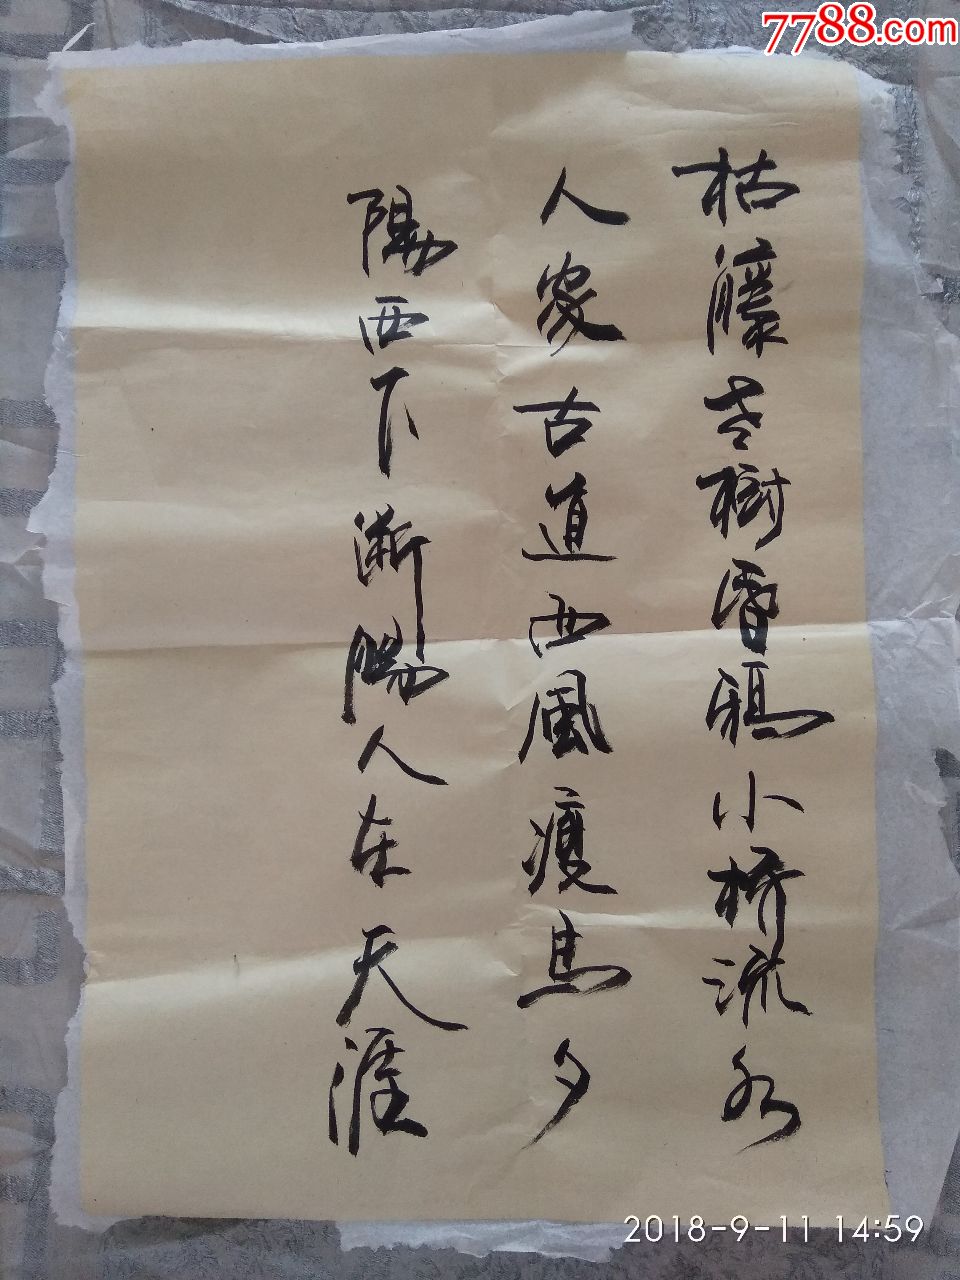 7788.com
枯藤老樹昏鴉小橋流水
人家古道西風瘦馬夕
陽西下斷腸人在天涯
2018-9-11 14:59